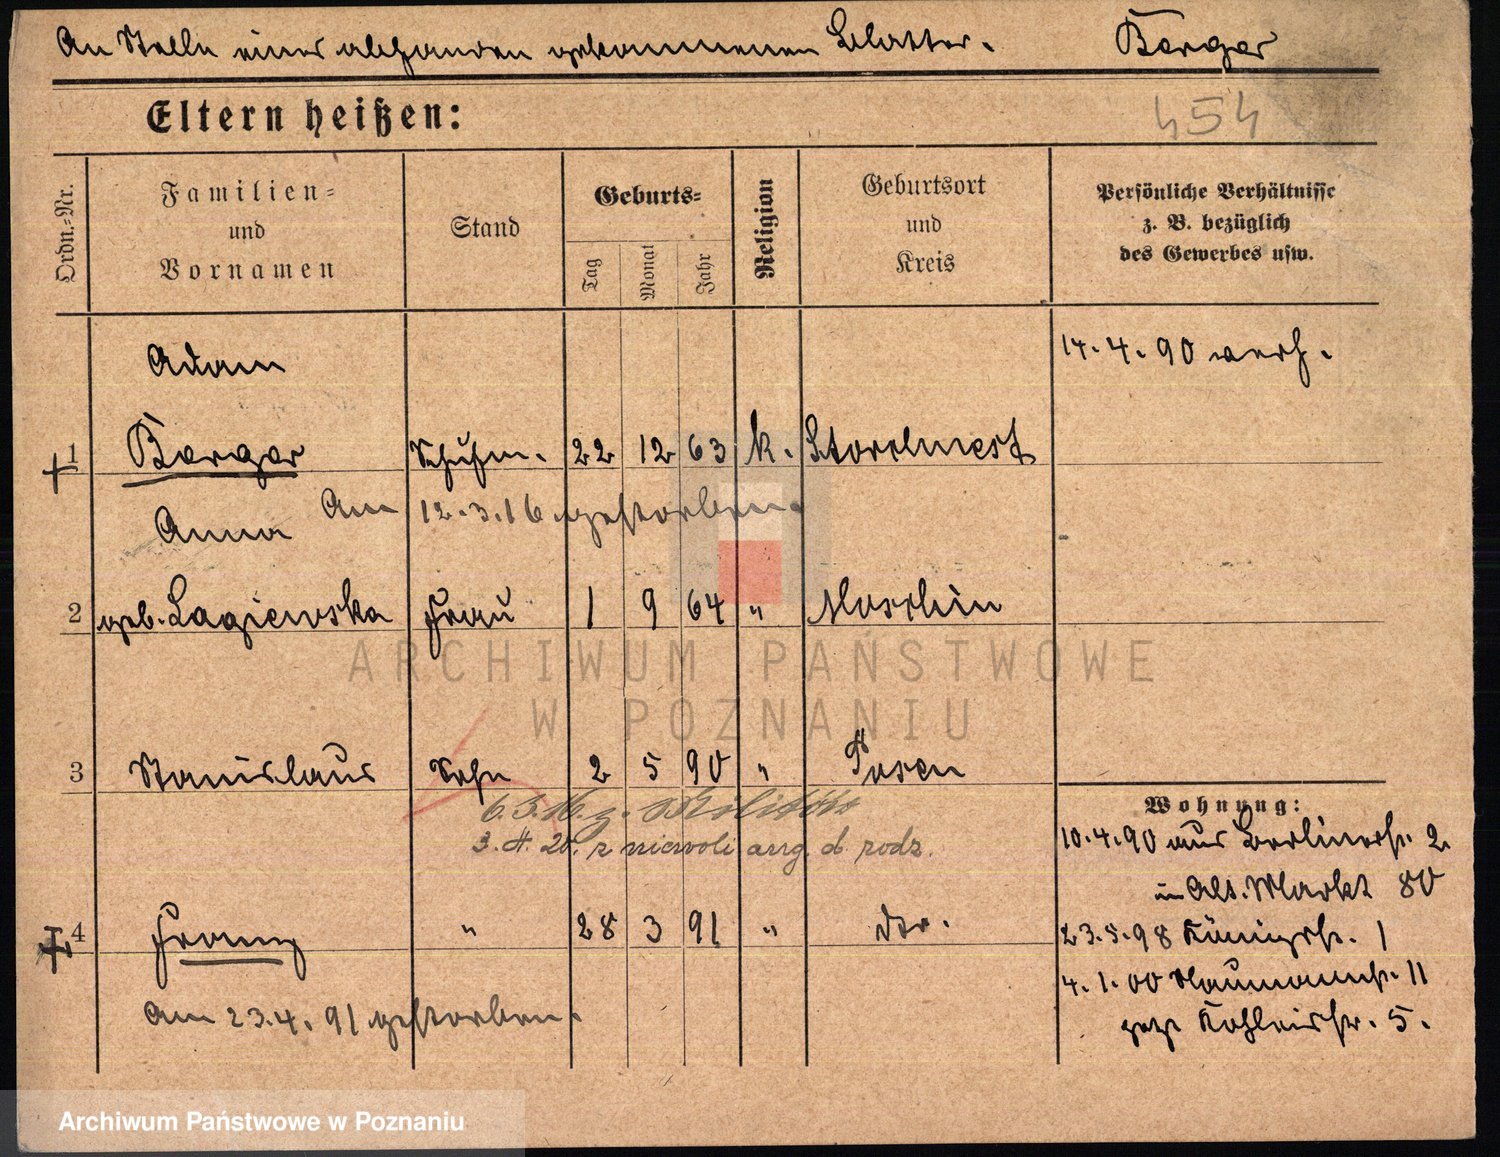 An Stelle eines abhanden gekommenen Blattes. Berger
Eltern heißen:
454
Ordn.-Nr.
Familien-
und
Vornamen
Stand
Geburts-
Tag
Monat
Jahr
Religion
Geburtsort
und
Kreis
Persönliche Verhältnisse
z. B. bezüglich
des Gewerbes usw.
Adam
14.4.90 verh.
1 Berger Schuhm. 22 12 63 k. Storchnest
Am 12.3.16 gestorben.
Anna
2 geb. Lagiewska Frau 1 9 64 " Moschin
3 Stanislaus Sohn 2 5 90 " Posen
3. 4. 20. z niewoli ang. d rodz.
Wohnung:
10.4.90 aus Berlinerstr. 2
in Alt. Markt 80
4 Franz " 28 3 91 " dto.
23.5.98 Königstr. 1
4.1.00 Naumannstr. 11
am 23.4.91 gestorben.
jetzt Kohleisstr. 5.
ARCHIWUM PAŃSTWOWE
W POZNANIU
Archiwum Państwowe w Poznaniu